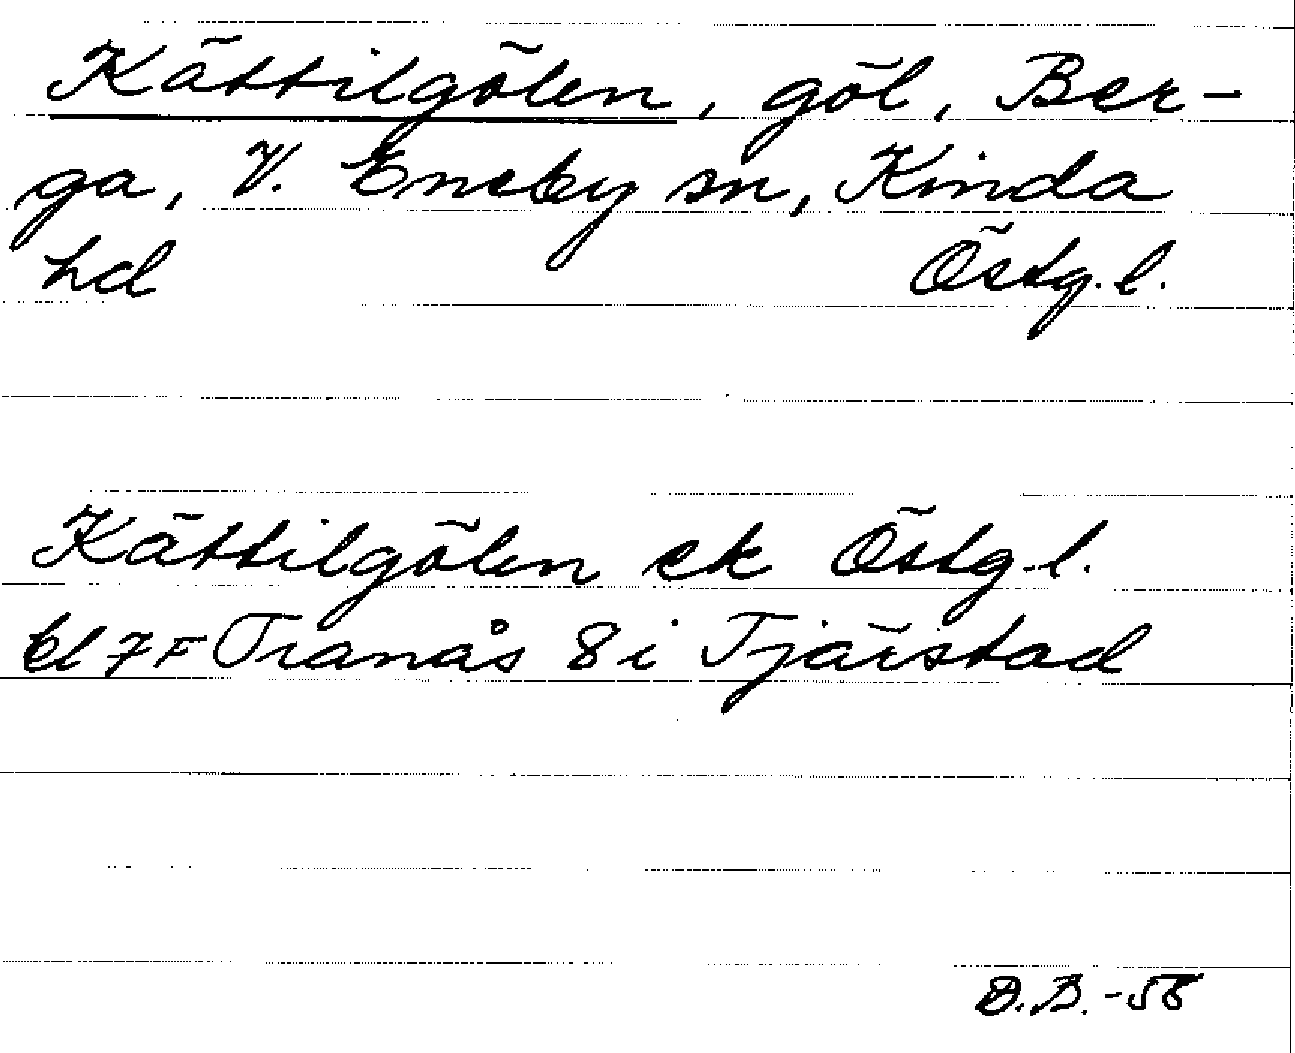 Kättilgölen, göl, Ber-
ga, V. Eneby sn, Kinda
hd Östg. l.
Kättilgölen ek Östg. l.
bl 7F Tranås 8 i Tjärstad
D.B. -58